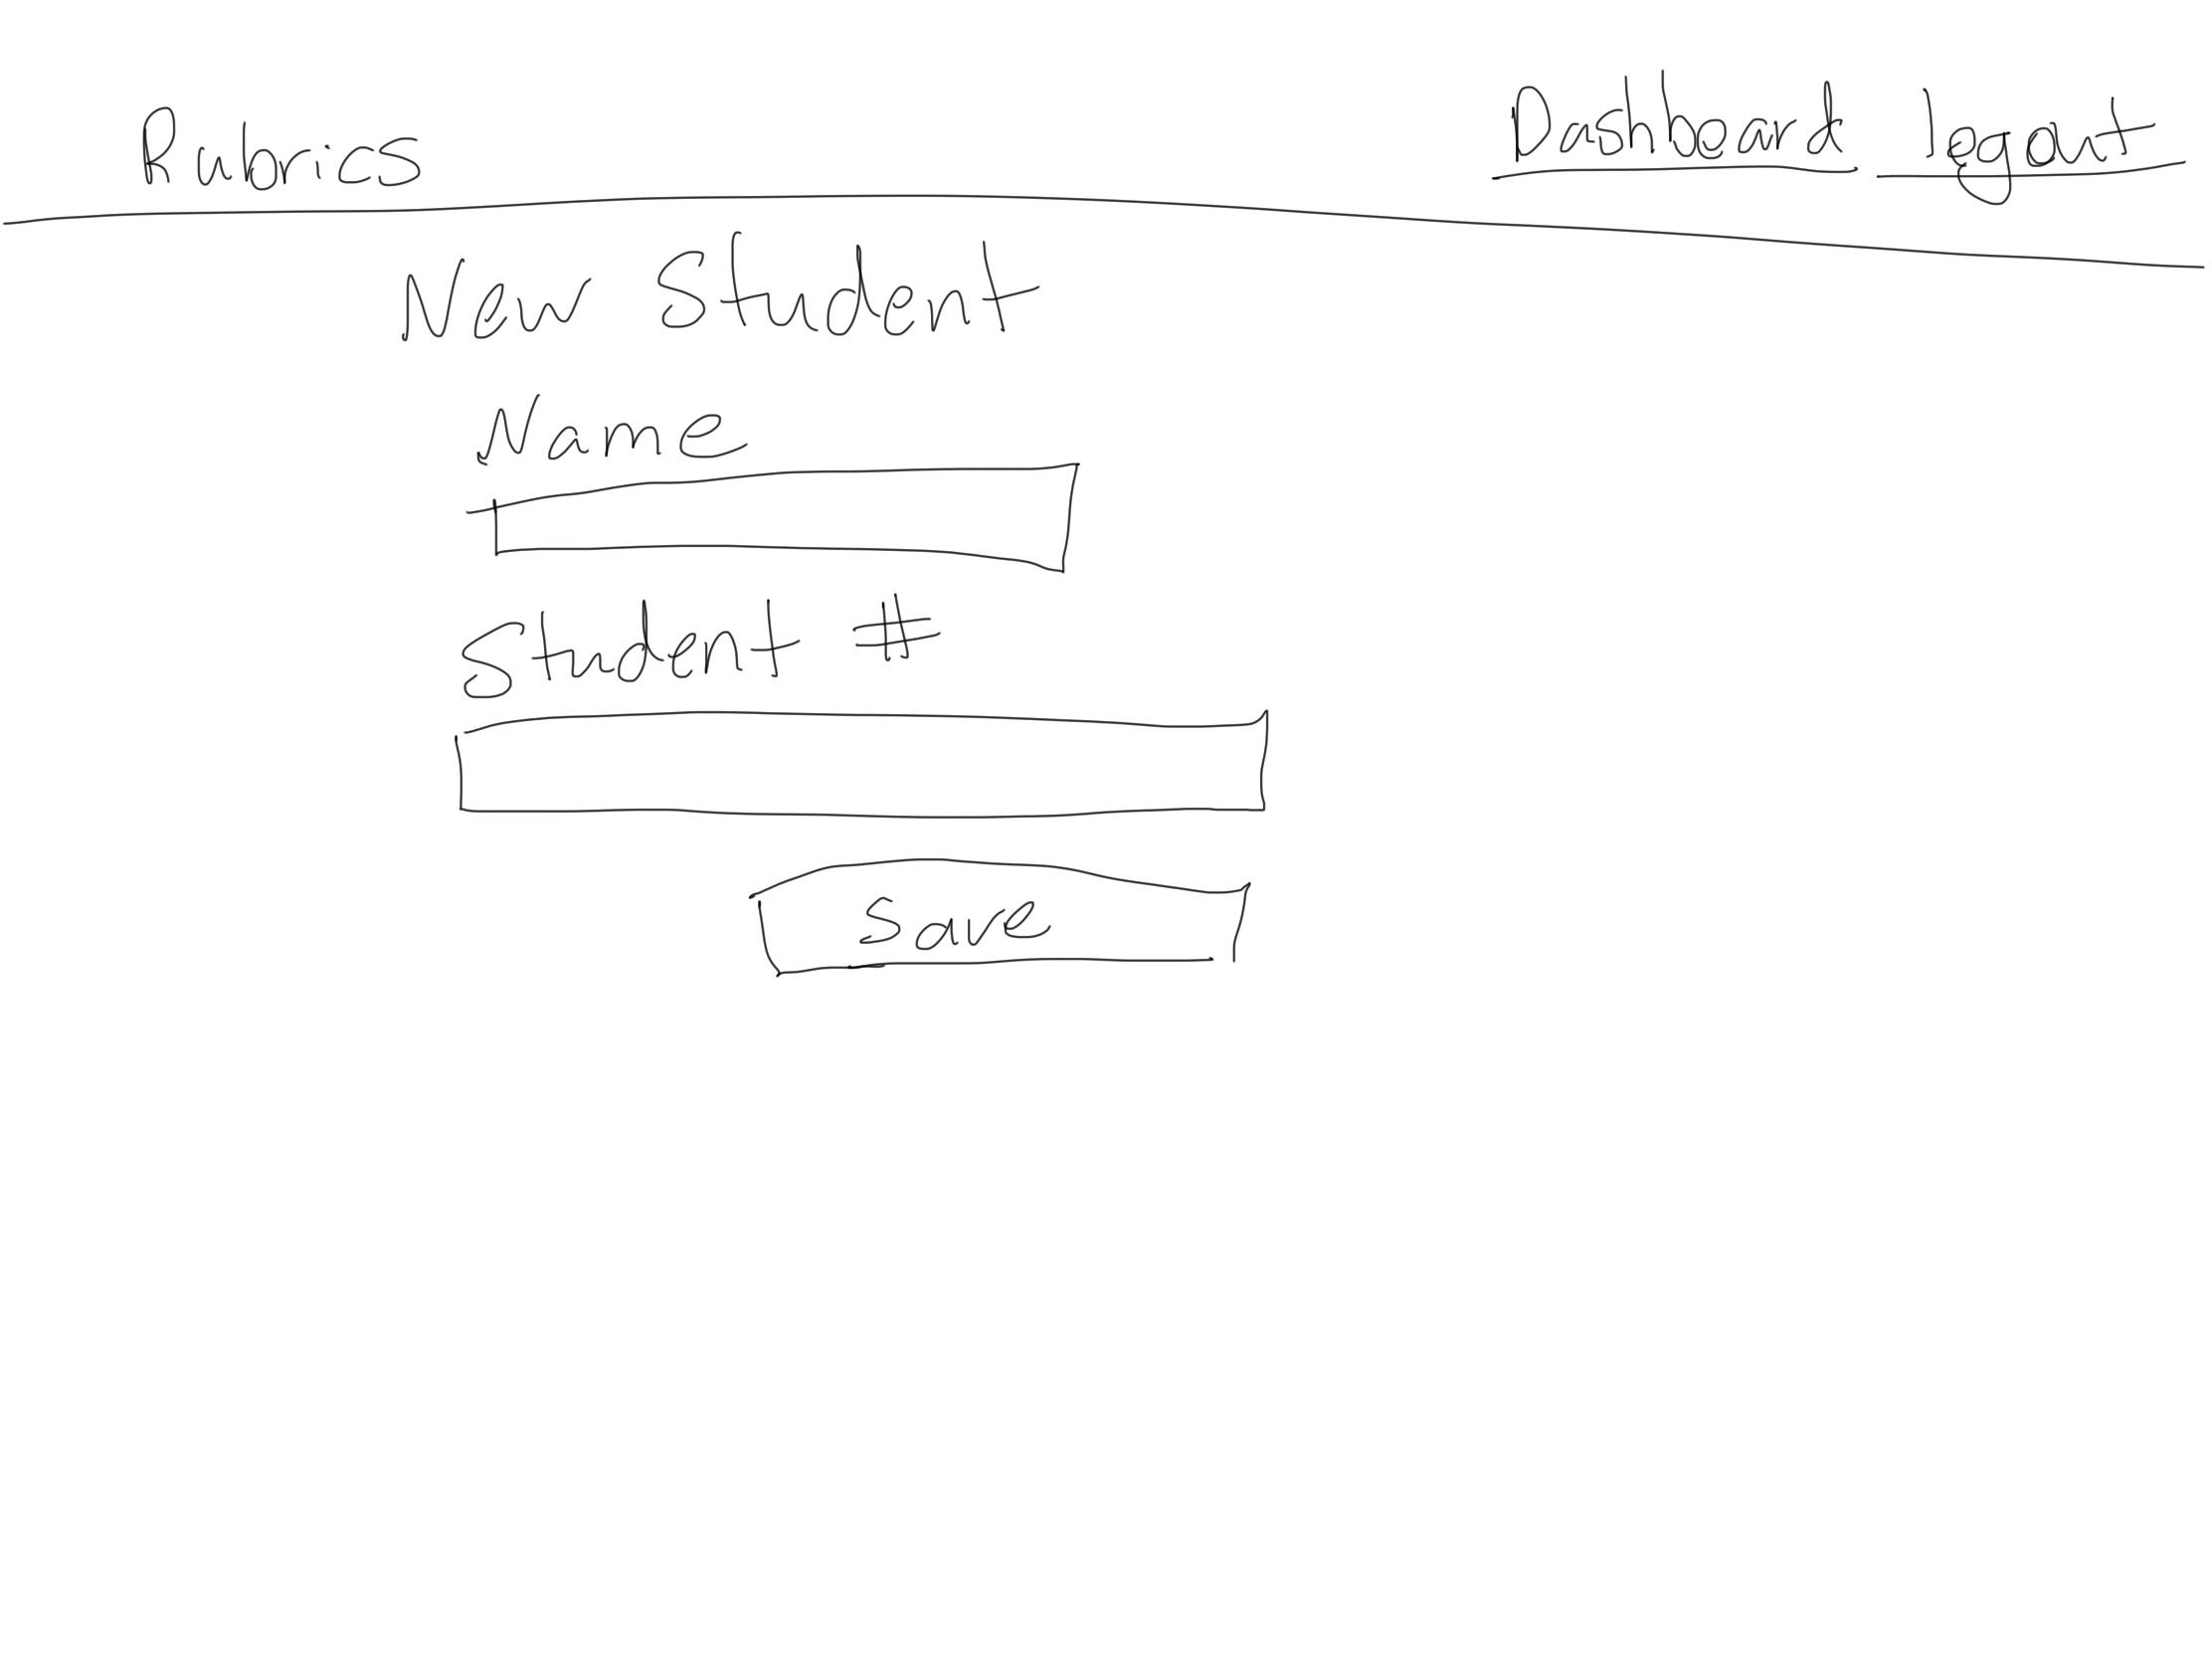 Rubrics Dashboard legout
New Student
Name
Student #
Save